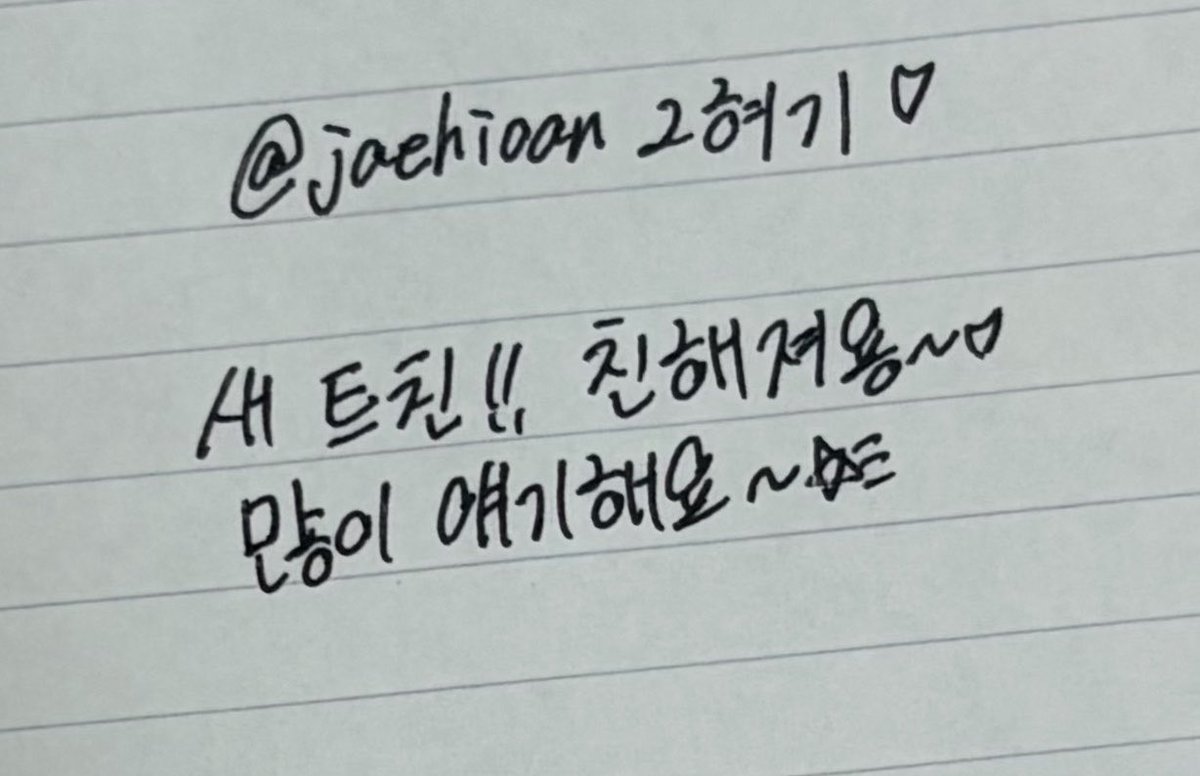 @jaehioan 2혀기 ♡
새 트친!! 친해져용~♡
많이 얘기해요~☆ミ